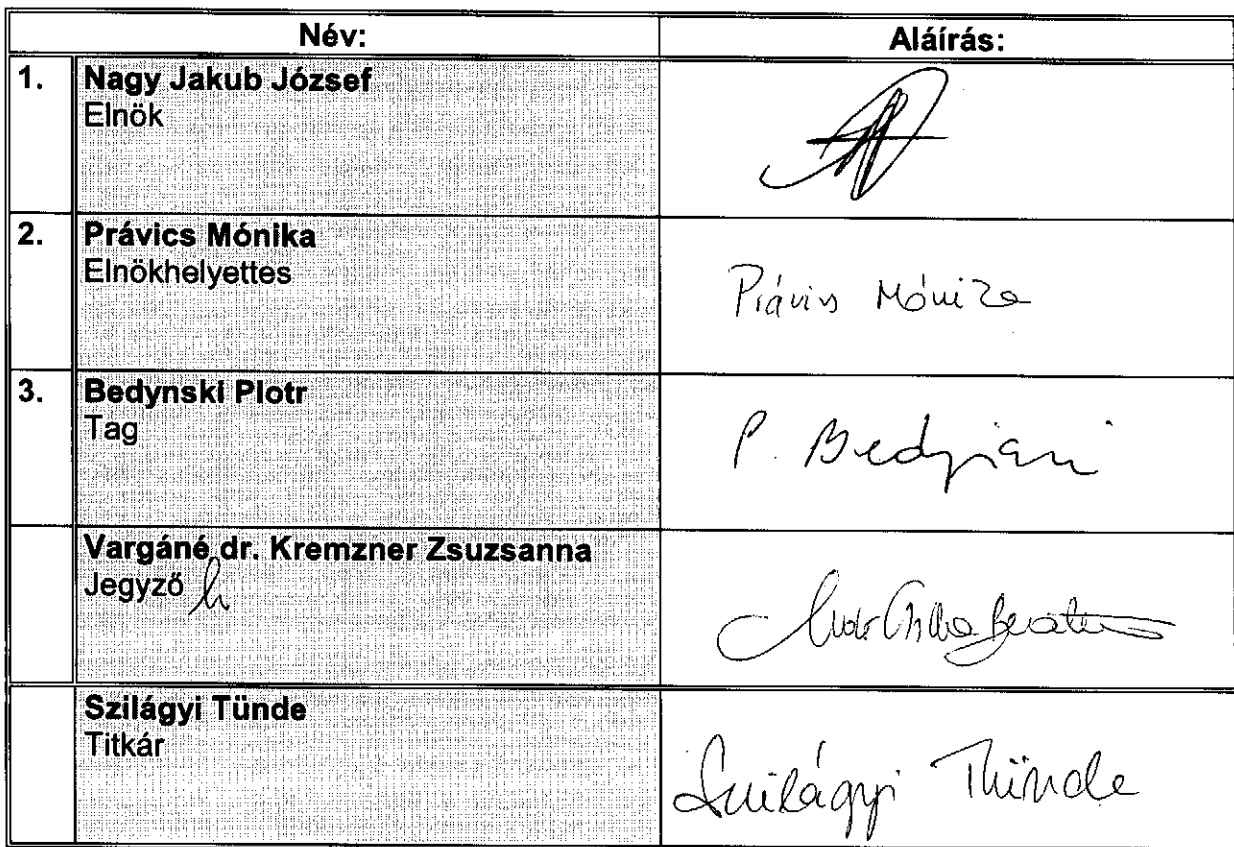 Név: Aláírás:
1. Nagy Jakub József
Elnök
2. Právics Mónika
Elnökhelyettes
Právics Mónika
3. Bedynski Plotr
Tag
P. Bedynski
Vargáné dr. Kremzner Zsuzsanna
Jegyző h
Szilágyi Tünde
Titkár
Szilágyi Tünde